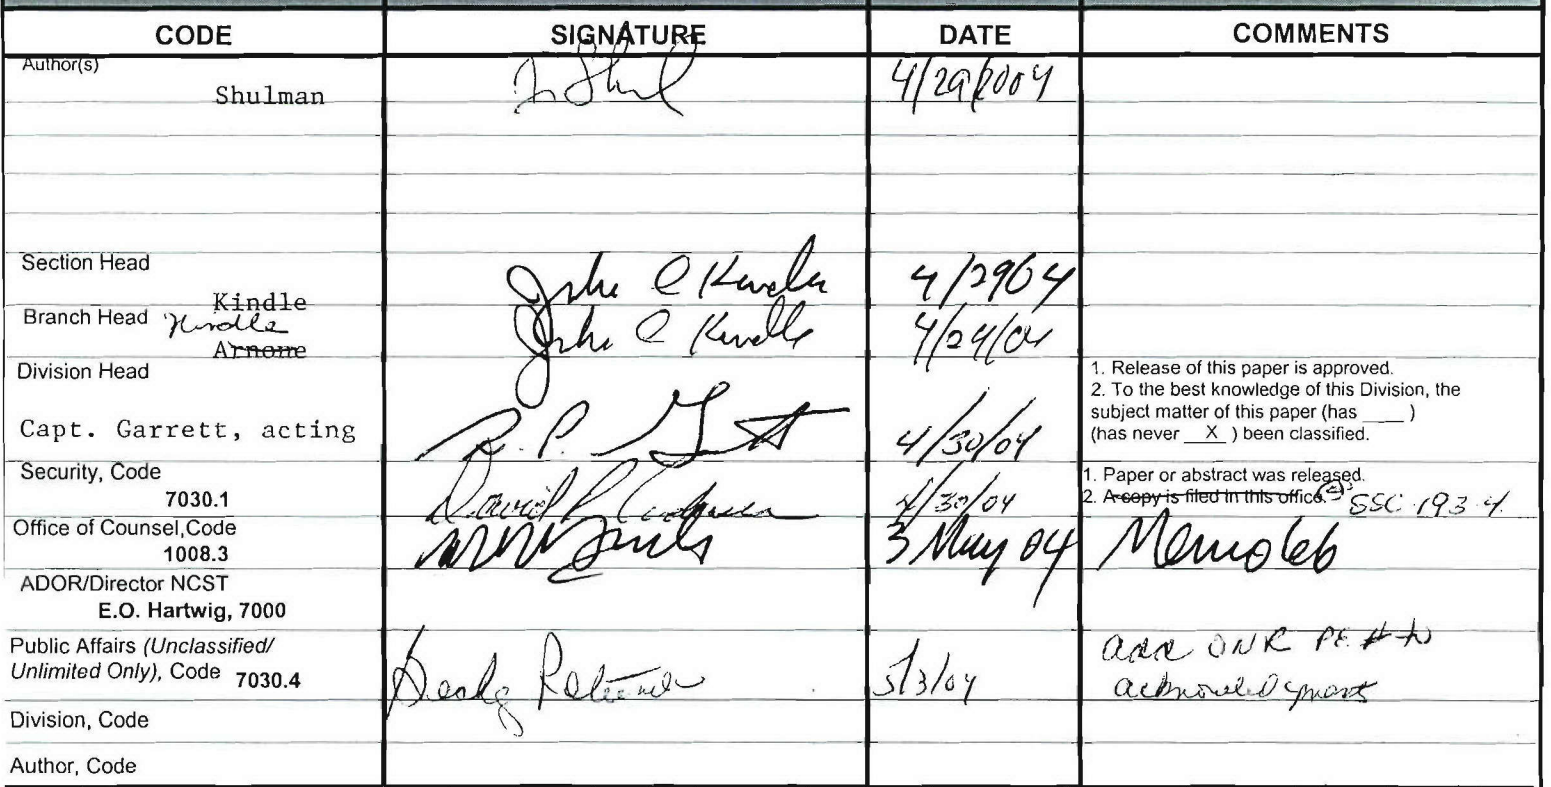 CODE SIGNATURE DATE COMMENTS
Author(s)
Shulman 4/29/2004
Section Head
Kindle John C Kindle 4/29/04
Branch Head Kindle
Arnone John C Kindle 4/29/04
Division Head
1. Release of this paper is approved.
2. To the best knowledge of this Division, the
subject matter of this paper (has ____ )
(has never X ) been classified.
Capt. Garrett, acting 4/30/04
Security, Code
7030.1 4/30/04
1. Paper or abstract was released.
2. A copy is filed in this office. SSC 193-4
Office of Counsel,Code
1008.3 3 May 04
ADOR/Director NCST
E.O. Hartwig, 7000
Public Affairs (Unclassified/
Unlimited Only), Code 7030.4 5/3/04
add ONR PE # to
acknowledgments
Division, Code
Author, Code